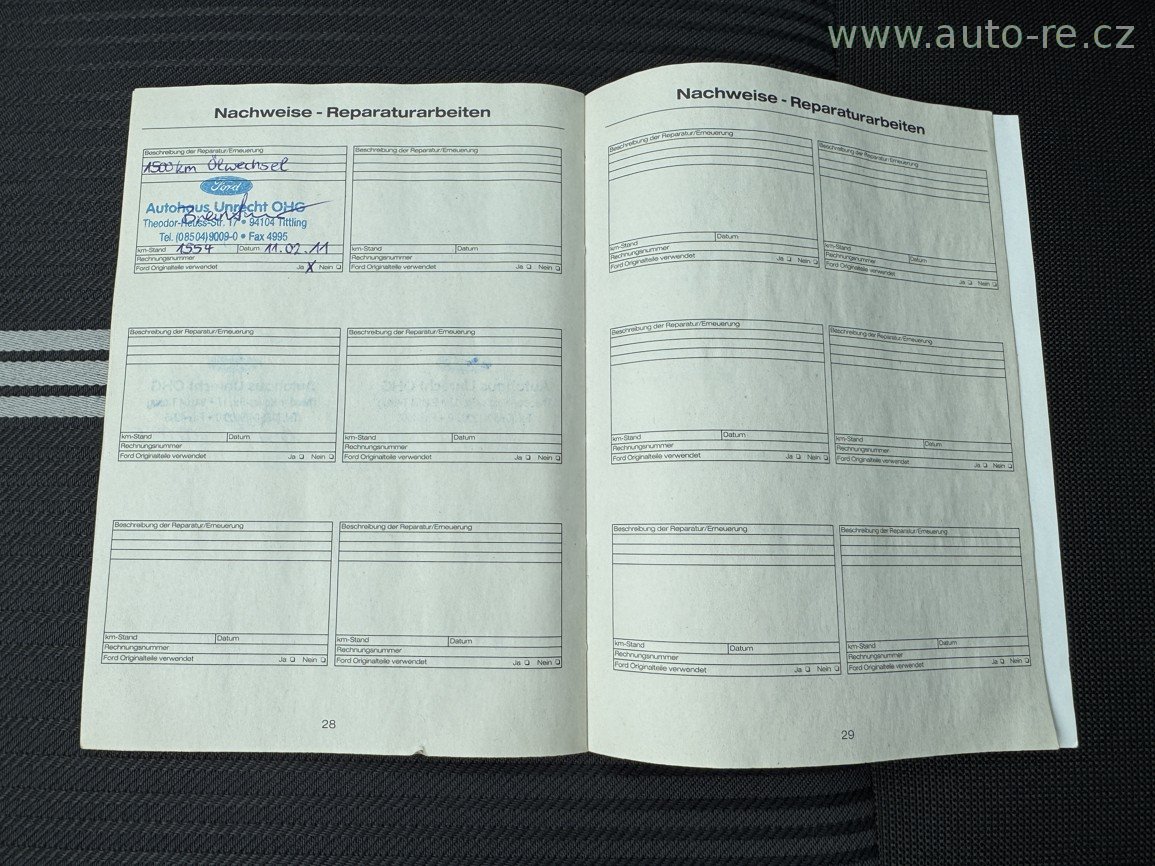 www.auto-re.cz
Nachweise - Reparaturarbeiten
Beschreibung der Reparatur/Erneuerung
1500 km Ölwechsel
Ford
Autohaus Unrecht OHG
Theodor-Heuss-Str. 17 • 94104 Tittling
Tel. (08504) 9009-0 • Fax 4995
km-Stand 1554 Datum 11.02.11
Rechnungsnummer
Ford Originalteile verwendet Ja X Nein
Beschreibung der Reparatur/Erneuerung
km-Stand Datum
Rechnungsnummer
Ford Originalteile verwendet Ja Nein
Beschreibung der Reparatur/Erneuerung
km-Stand Datum
Rechnungsnummer
Ford Originalteile verwendet Ja Nein
Beschreibung der Reparatur/Erneuerung
km-Stand Datum
Rechnungsnummer
Ford Originalteile verwendet Ja Nein
Beschreibung der Reparatur/Erneuerung
km-Stand Datum
Rechnungsnummer
Ford Originalteile verwendet Ja Nein
Beschreibung der Reparatur/Erneuerung
km-Stand Datum
Rechnungsnummer
Ford Originalteile verwendet Ja Nein
28
Nachweise - Reparaturarbeiten
Beschreibung der Reparatur/Erneuerung
km-Stand Datum
Rechnungsnummer
Ford Originalteile verwendet Ja Nein
Beschreibung der Reparatur/Erneuerung
km-Stand
Rechnungsnummer Datum
Ford Originalteile verwendet Ja Nein
Beschreibung der Reparatur/Erneuerung
km-Stand Datum
Rechnungsnummer
Ford Originalteile verwendet Ja Nein
Beschreibung der Reparatur/Erneuerung
km-Stand Datum
Rechnungsnummer
Ford Originalteile verwendet Ja Nein
Beschreibung der Reparatur/Erneuerung
km-Stand Datum
Rechnungsnummer
Ford Originalteile verwendet Ja Nein
Beschreibung der Reparatur/Erneuerung
km-Stand Datum
Rechnungsnummer
Ford Originalteile verwendet Ja Nein
29